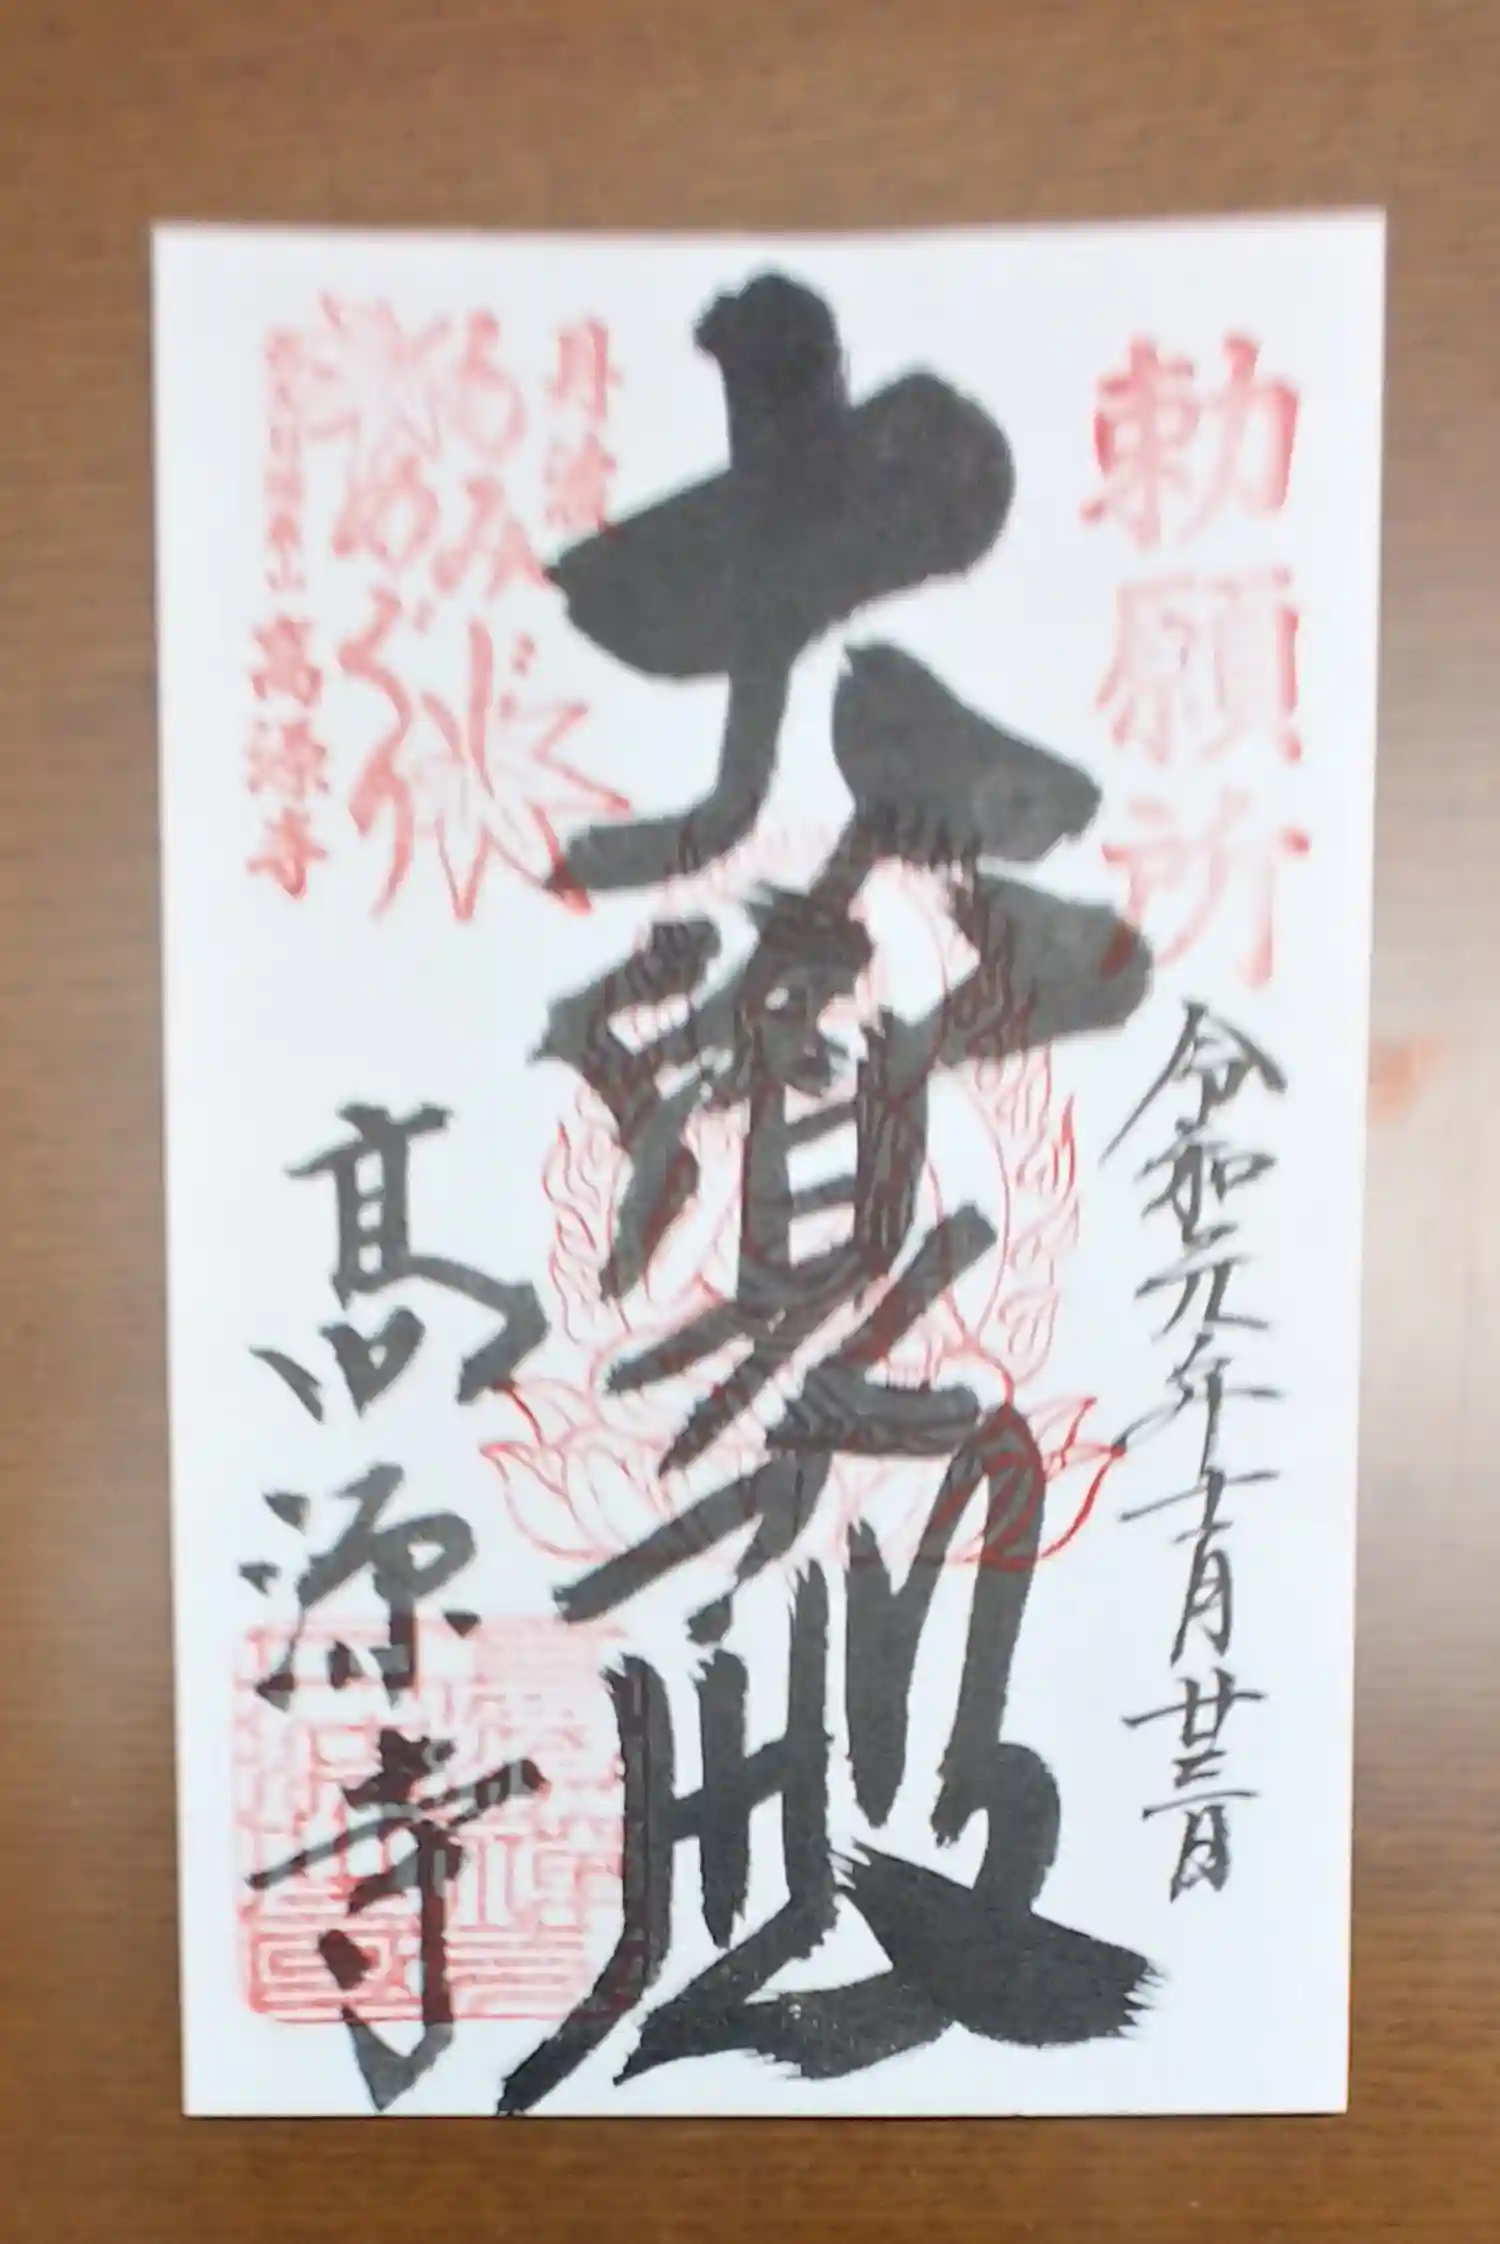 勅願所
令和元年十一月廿三日
大寶殿
丹波
もみじ
めぐり
高源寺
髙源寺